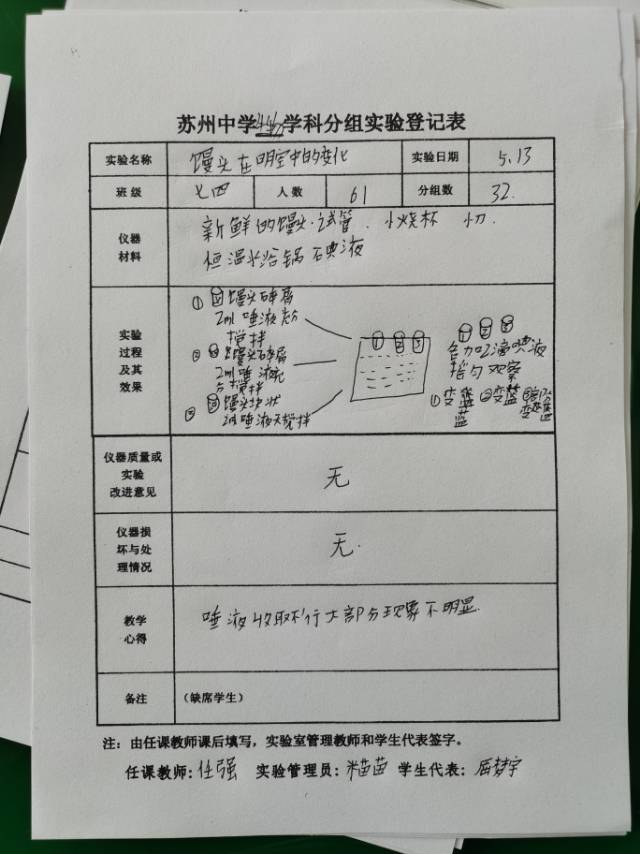 苏州中学生物学科分组实验登记表
实验名称 馒头在口腔中的变化 实验日期 5.13
班级 七四 人数 61 分组数 32.
仪器材料 新鲜的馒头.试管.小烧杯 刀.
恒温水浴锅 碘液
实验过程及其效果
① 馒头碎屑
2ml 唾液充分
搅拌
② 馒头碎屑
2ml
搅拌
③ 馒头块状
2ml唾液不搅拌
① ② ③
① ② ③
各加2滴碘液
摇匀 观察
① ②变蓝 ③部分
变蓝
仪器质量或实验改进意见 无
仪器损坏与处理情况 无.
教学心得 唾液收取不行大部分现象不明显.
备注 (缺席学生)
注：由任课教师课后填写，实验室管理教师和学生代表签字。
任课教师：任强 实验管理员：米苗苗 学生代表：屈梦宇